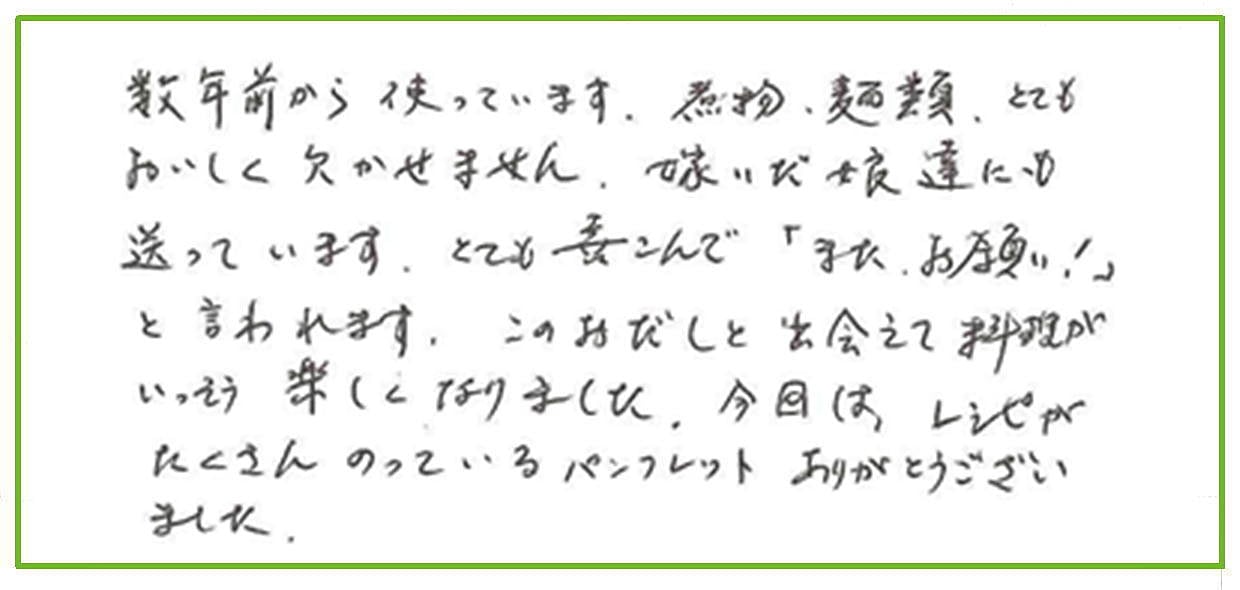 数年前から使っています. 煮物、麺類、とても
おいしく欠かせません. 嫁いだ娘達にも
送っています. とても喜こんで「また、お願い!」
と言われます. このおだしと出会えて料理が
いっそう楽しくなりました. 今回は、レシピが
たくさんのっているパンフレットありがとうござい
ました.